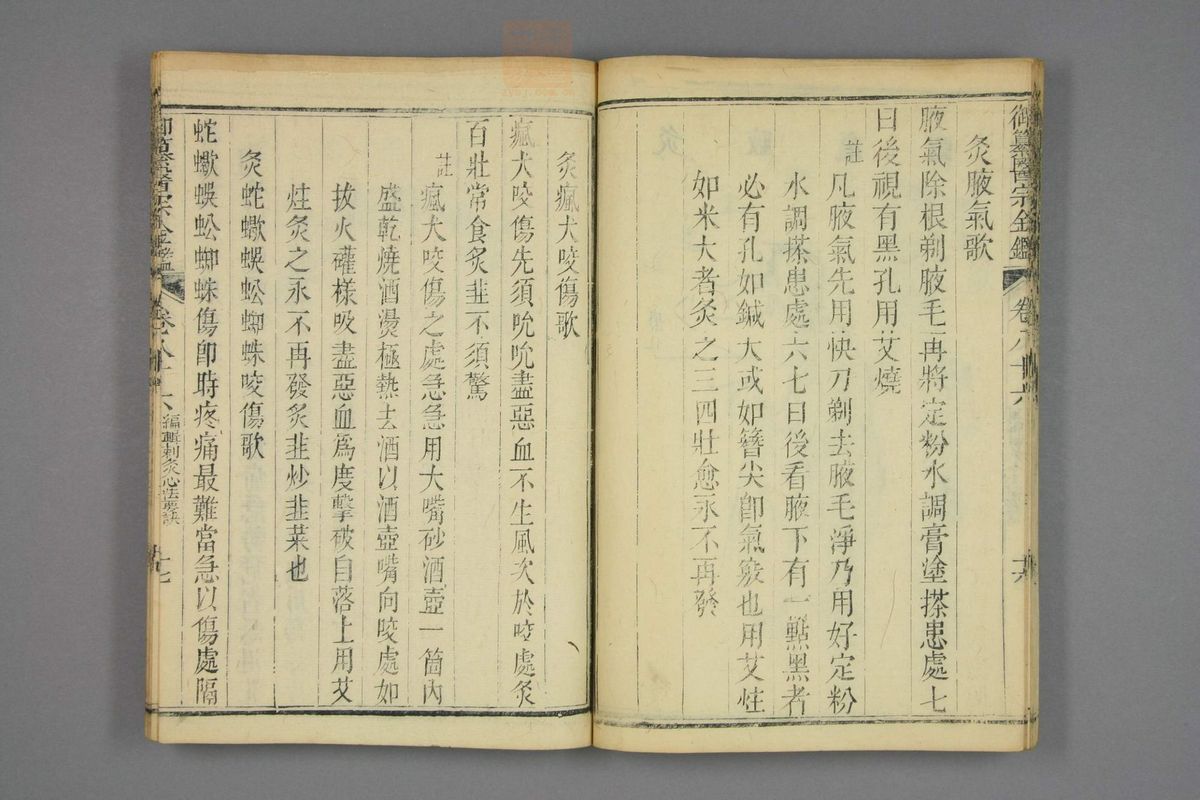 御纂醫宗金鑑 卷八十六 十六
灸腋氣歌
腋氣除根剃腋毛再將定粉水調膏塗搽患處七
日後視有黑孔用艾燒
註凡腋氣先用快刀剃去腋毛淨乃用好定粉
水調搽患處六七日後看腋下有一點黑者
必有孔如鍼大或如簪尖卽氣竅也用艾炷
如米大者灸之三四壯愈永不再發
灸瘋犬咬傷歌
瘋犬咬傷先須吮吮盡惡血不生風次於咬處灸
百壯常食炙韭不須驚
註瘋犬咬傷之處急急用大嘴砂酒壺一箇內
盛乾燒酒燙極熱去酒以酒壺嘴向咬處如
拔火礶樣吸盡惡血爲度擊破自落上用艾
炷灸之永不再發炙韭炒韭菜也
灸蛇蠍蜈蚣蜘蛛咬傷歌
蛇蠍蜈蚣蜘蛛傷卽時疼痛最難當急以傷處隔
御纂醫宗金鑑 卷八十六 編輯刺灸心法要訣 十七